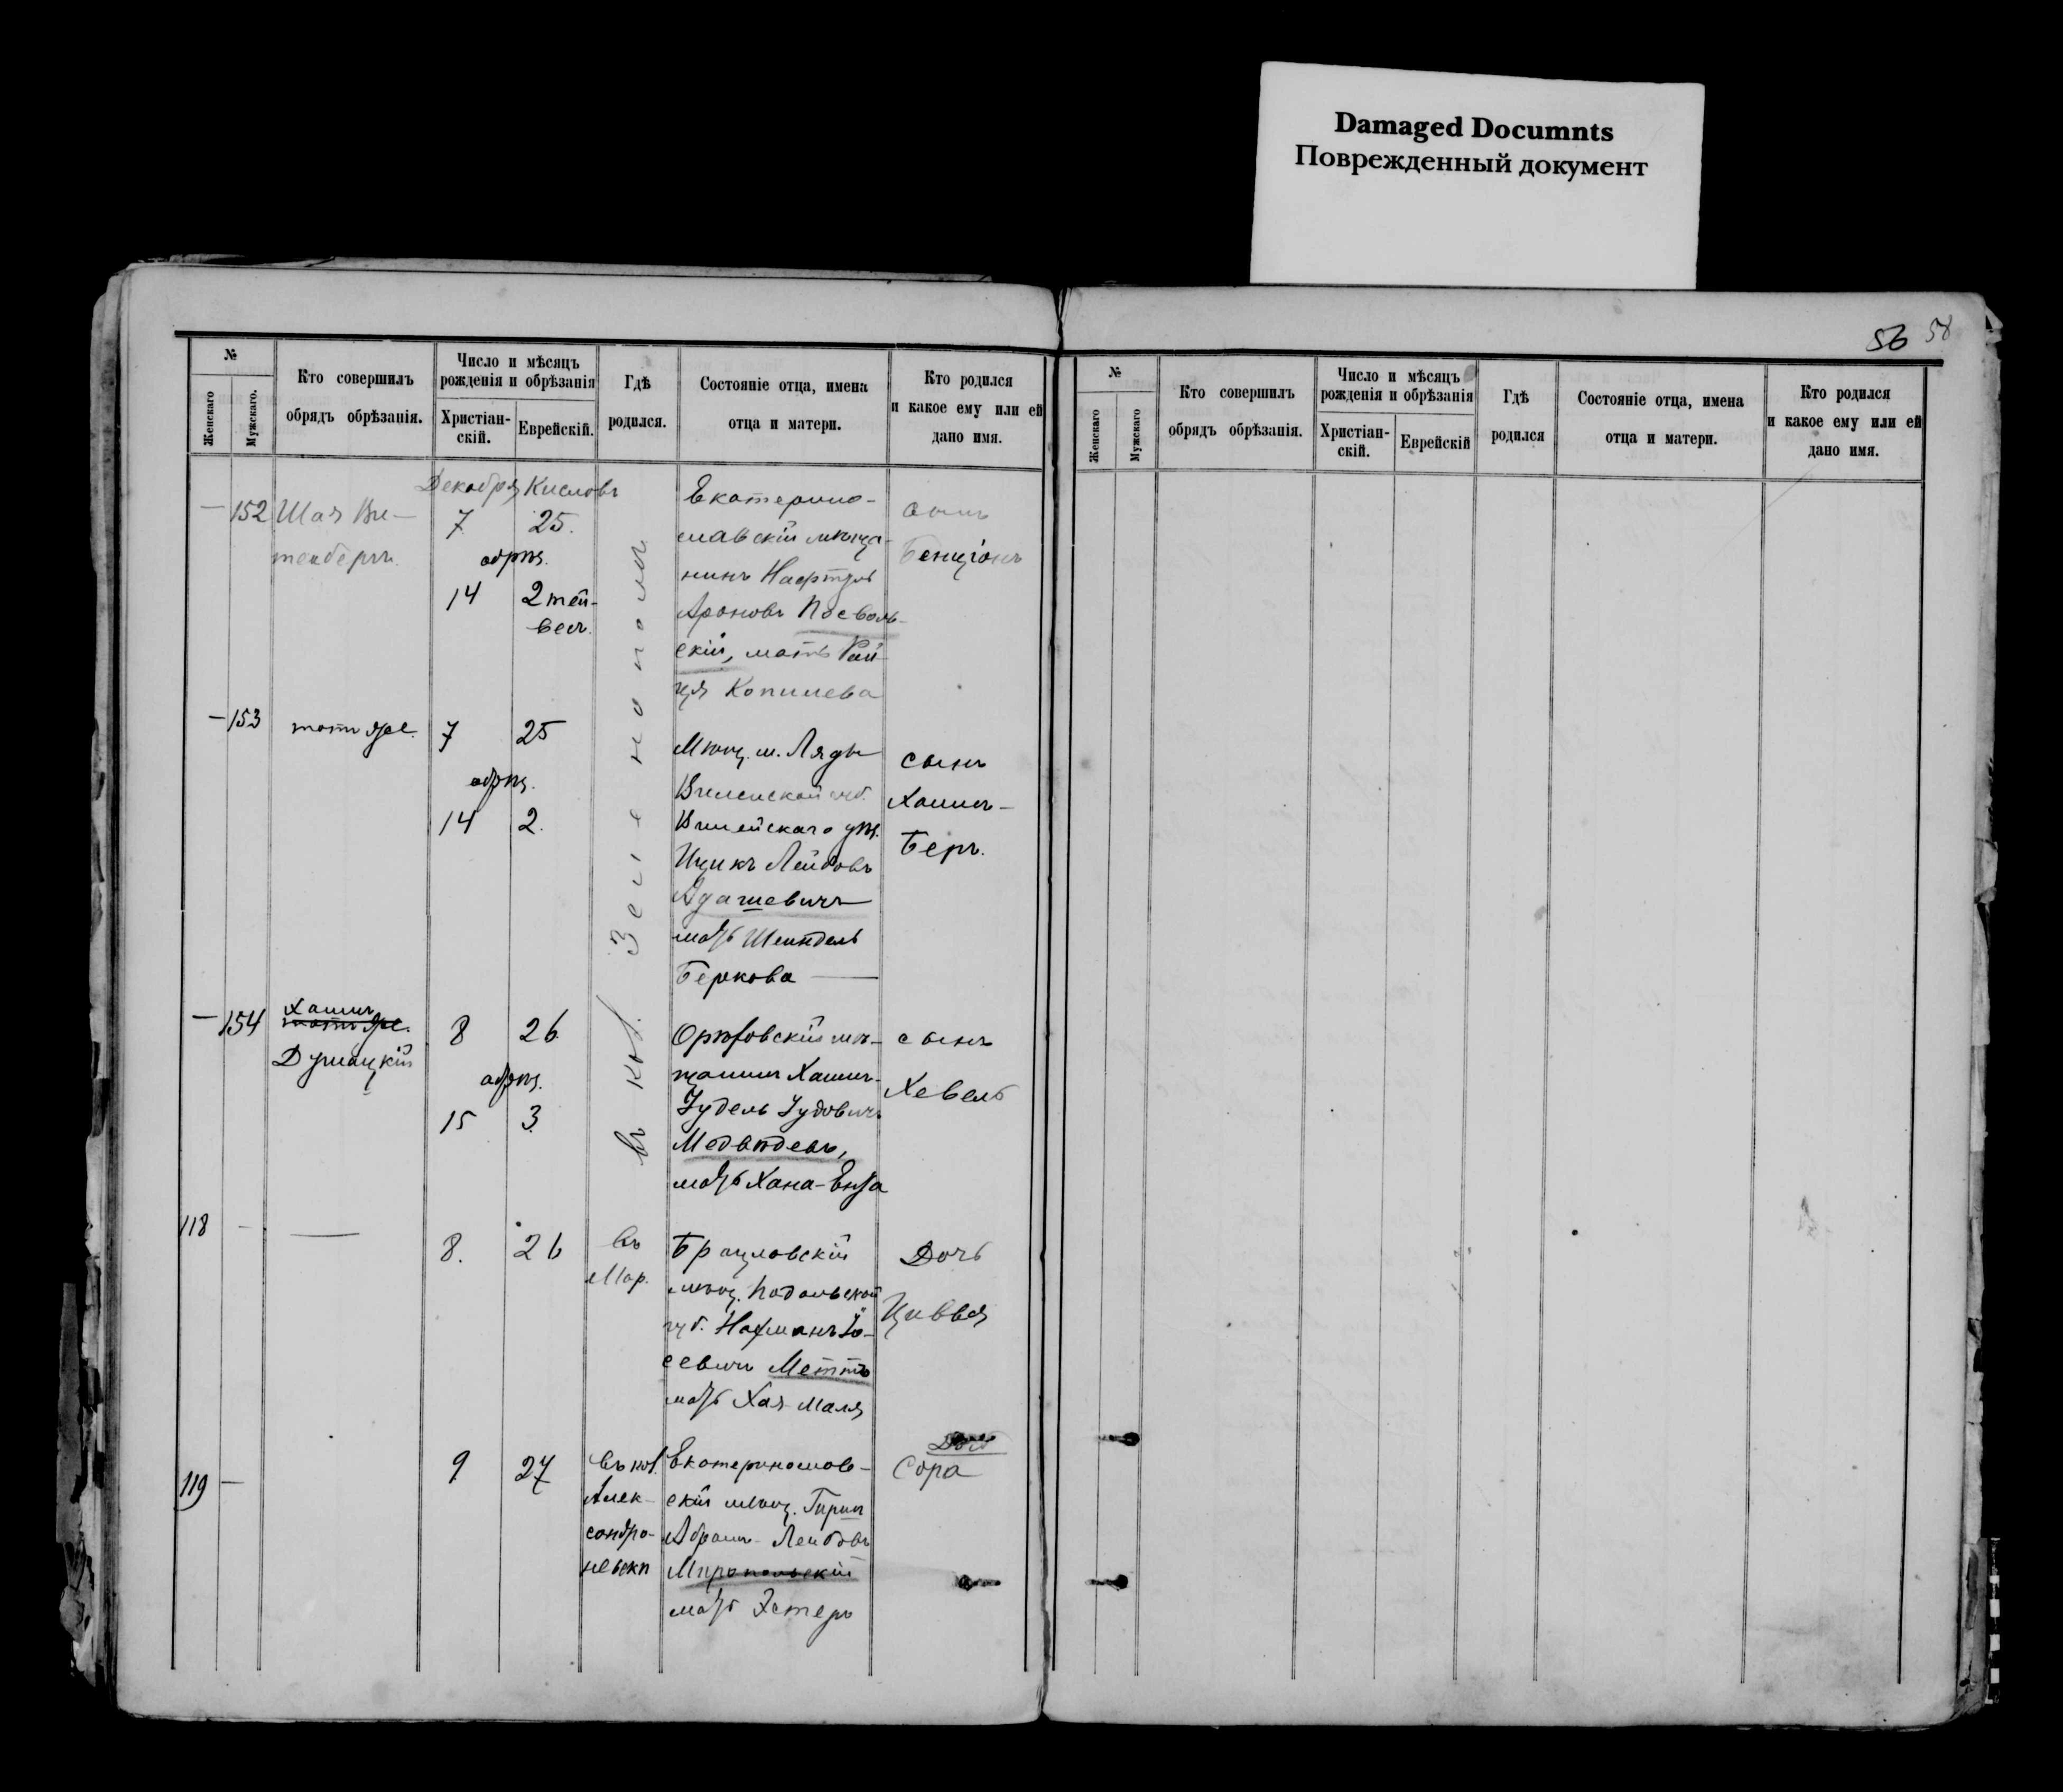 Damaged Documnts
Поврежденный документ
56 58
№
Женскаго
Мужскаго.
Кто совершилъ
обрядъ обрѣзанія.
Число и мѣсяцъ
рожденія и обрѣзанія
Христіан-
скій.
Еврейскій.
Гдѣ
родился.
Состояніе отца, имена
отца и матери.
Кто родился
и какое ему или ей
дано имя.
Декабря Кислевъ
— 152
Шая
7 25.
обрѣз.
14 2 тей-
веся.
въ кол. Зеленополѣ
Екатерино-
славскій мѣща-
нинъ Нафтуль
Ароновъ Посволь-
скій, мать Рай-
ця Копилева
сынъ
Бенціонъ
— 153
тотъ же.
7 25
обрѣз.
14 2.
Мѣщ. м. Ляды
Виленской губ.
Вилейскаго уѣз.
Ицикъ Лейбовъ
Адашевичъ
мать Шейндель
Беркова —
сынъ
Хаимъ-
Беръ.
— 154
Хаимъ
тотъ же.
8 26
обрѣз.
15 3
Орѣховскій мѣ-
щанинъ Хаимъ-
Іудель Іудовичъ
Медвѣдевъ,
мать Хана-Ента
сынъ
Хевель
118 —
—
8. 26
въ
Мар.
Брацлавскій
мѣщ. Подольской
губ. Нахманъ Іо-
севичъ Меттъ
мать Хая Маля
Дочь
Цивья
119 —
9 27
въ кол.
Алек-
сандро-
невскѣ
Екатеринослав-
скій мѣщ.
Абрамъ Лейбовъ
Миропольскій
мать Эстеръ
Дочь
Сора
№
Женскаго
Мужскаго
Кто совершилъ
обрядъ обрѣзанія.
Число и мѣсяцъ
рожденія и обрѣзанія
Христіан-
скій.
Еврейскій
Гдѣ
родился
Состояніе отца, имена
отца и матери.
Кто родился
и какое ему или ей
дано имя.